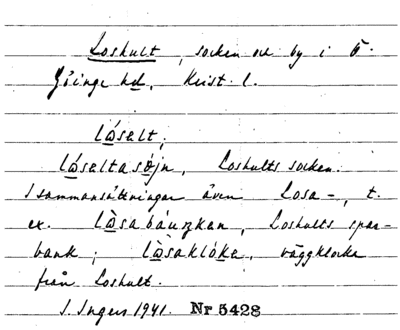 Loshult, socken och by i Ö.
Göinge hd, Krist. l.
lωselt;
lωseltasωjn, Loshults socken.
I sammansättningar även Losa-, t.
ex. lὼsabáuŋken, Loshults spar-
bank; lὼsaklóka, väggklocka
från Loshult.
I. Ingers 1941. Nr 5428